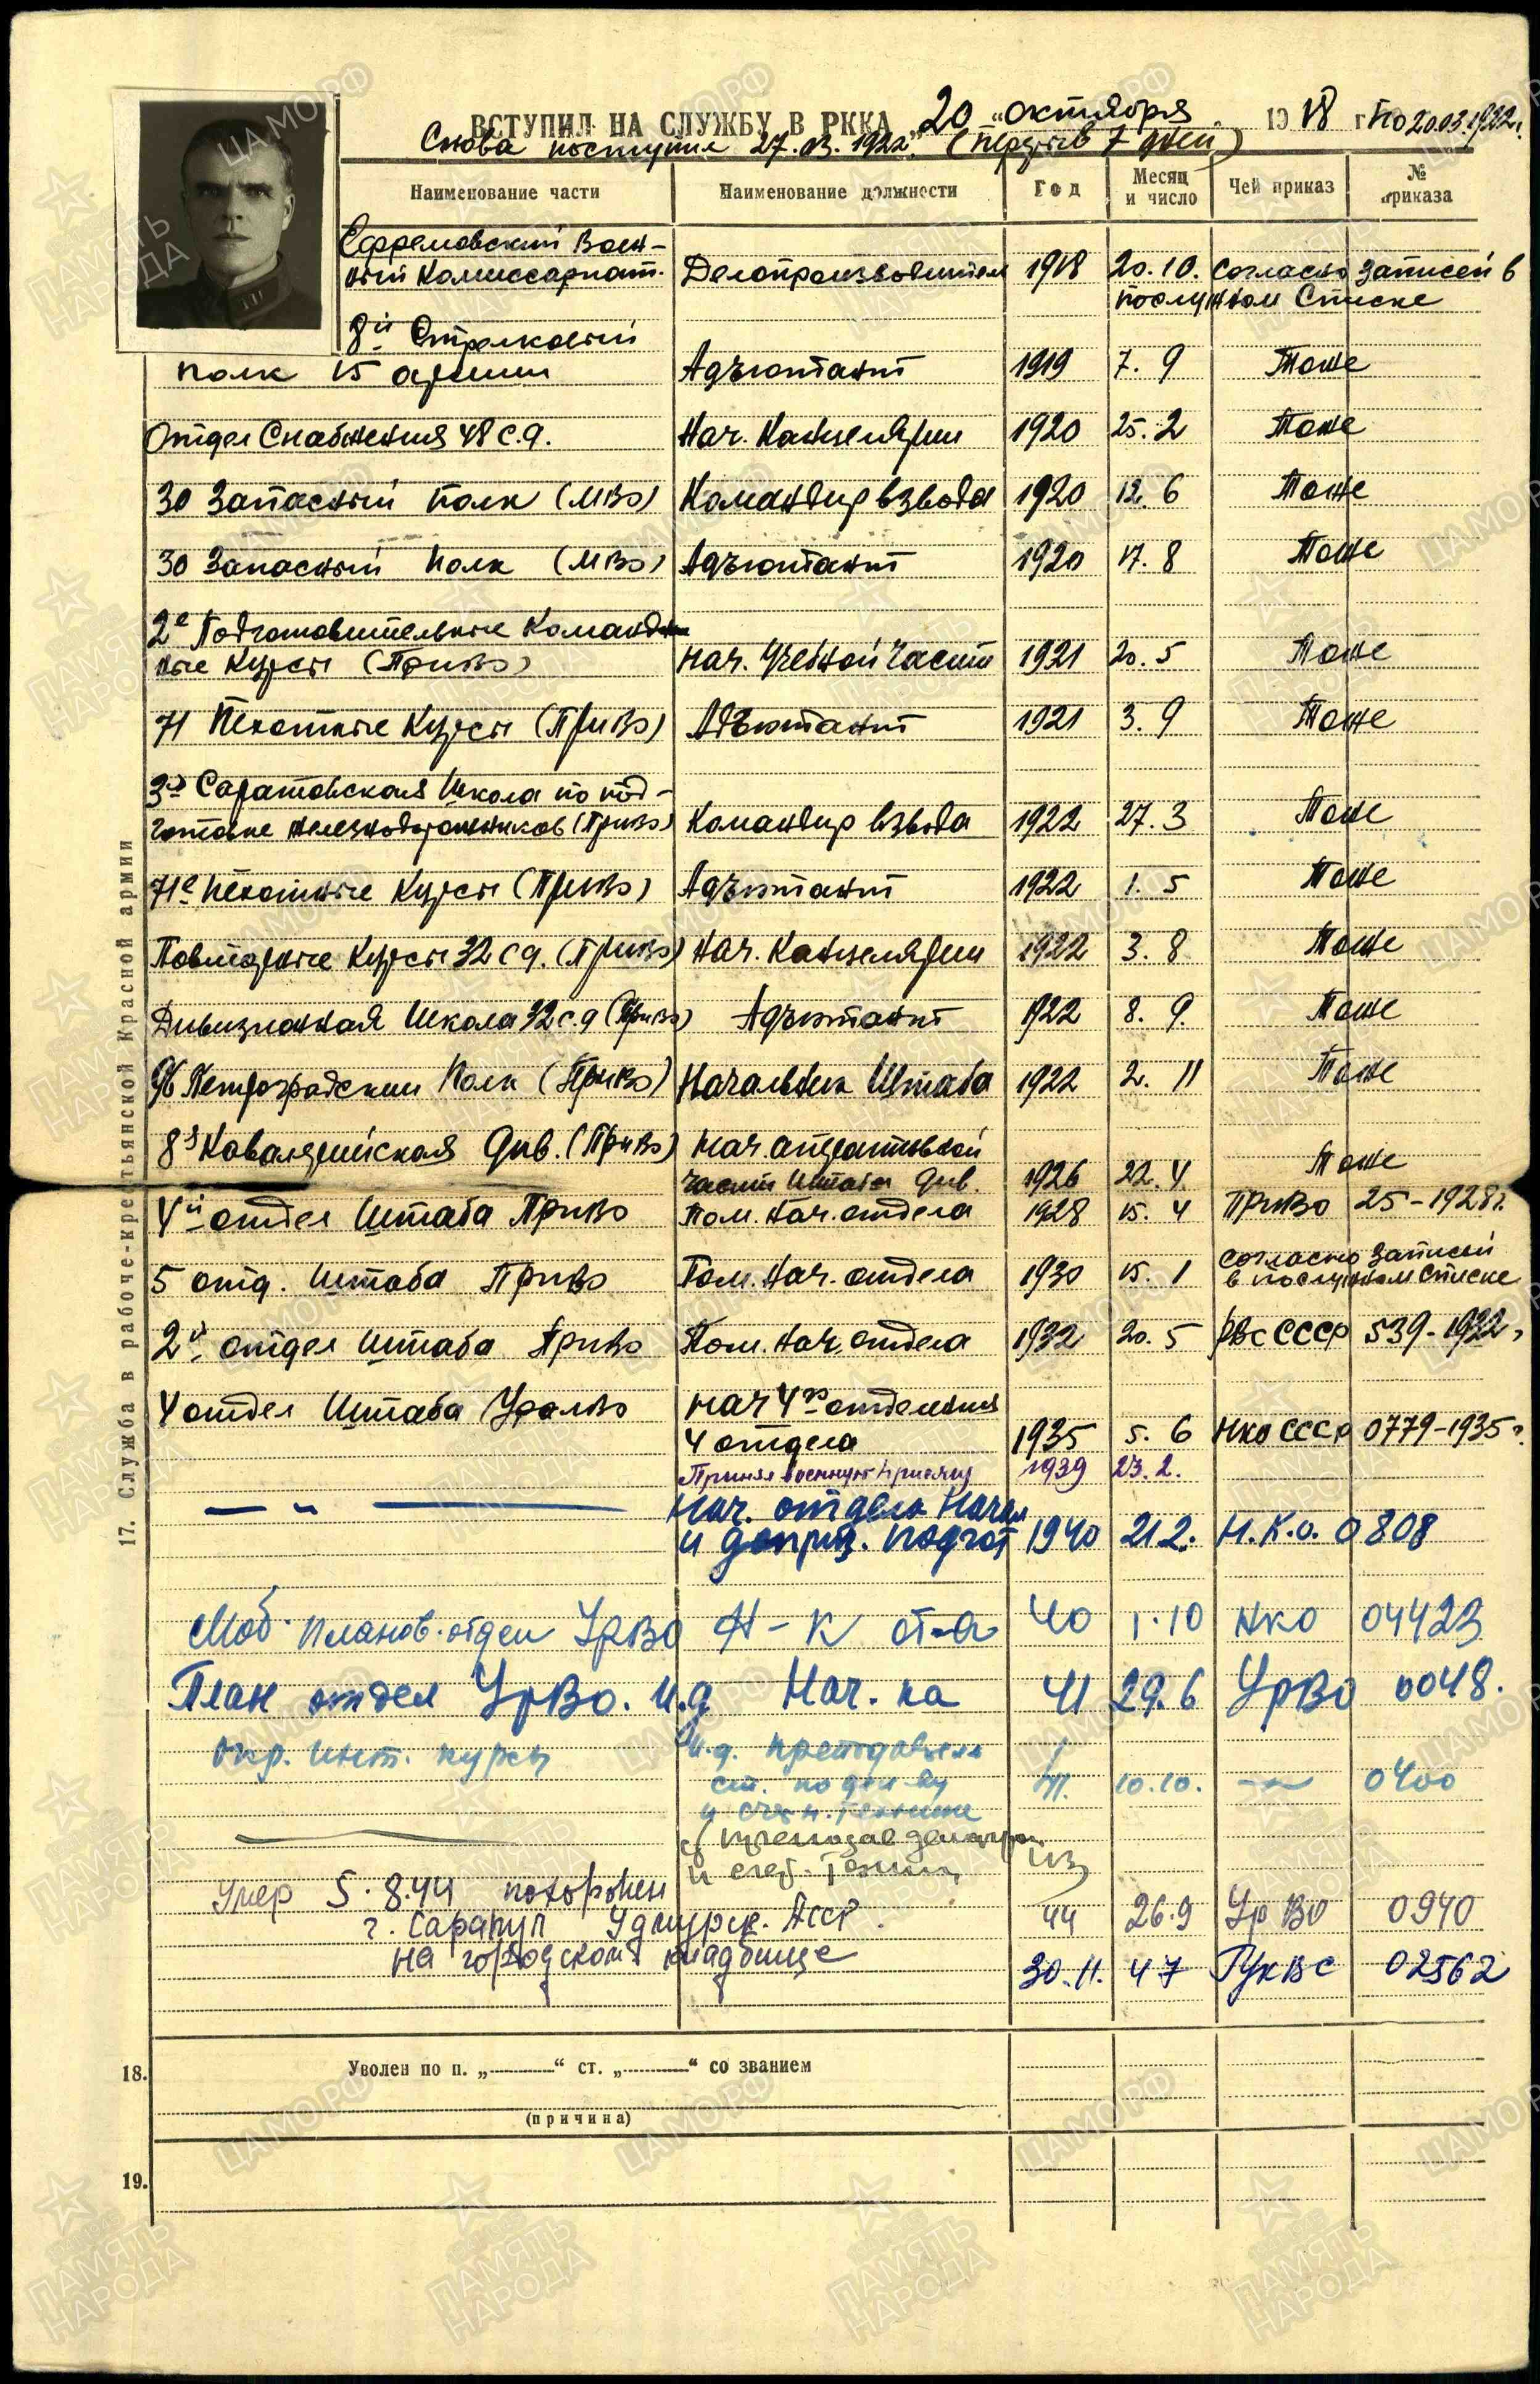 ВСТУПИЛ НА СЛУЖБУ В РККА 20 октября 1918 г. по 20.03.1922г.
Снова поступил 27.03.1922г. (перерыв 7 дней)
Наименование части Наименование должности Год Месяц и число Чей приказ № приказа
Ефремовский Воен-
ный Комиссариат. Делопроизводителем 1918 20.10. Согласно Записей в
послужном Списке
8й Стрелковый
полк 15 армии Адъютант 1919 7. 9 Тоже
Отдел Снабжения 48 с.д. Нач. Канцелярии 1920 25. 2 Тоже
30 Запасный полк (МВО) Командир взвода 1920 12. 6 Тоже
30 Запасный Полк (МВО) Адъютант 1920 17. 8 Тоже
2е Подготовительные Команд
ные Курсы (ПриВО) Нач. Учебной Части 1921 20. 5 Тоже
71 Пехотные Курсы (ПриВО) Адъютант 1921 3. 9 Тоже
3я Саратовская Школа по под-
готовке железнодорожников (ПриВО) Командир взвода 1922 27. 3 Тоже
71е Пехотные Курсы (ПриВО) Адъютант 1922 1. 5 Тоже
Повторные Курсы 32 с.д. (ПриВО) Нач. Канцелярии 1922 3. 8 Тоже
Дивизионная Школа 32 с.д (ПриВО) Адъютант 1922 8. 9. Тоже
96 Петроградский Полк (ПриВО) Начальник Штаба 1922 2. 11 Тоже
8я Кавалерийская Див. (ПриВО) Нач. оперативной
части Штаба Див. 1926 22. 4 Тоже
4й отдел Штаба ПриВО Пом. Нач. отдела 1928 15. 4 ПриВО 25-1928г.
5 отд. Штаба ПриВО Пом. Нач. отдела 1930 15. 1 Согласно Записей
в послужном Списке
2й отдел Штаба ПриВО Пом. Нач. отдела 1932 20. 5 РВС СССР 539-1932г
4 отдел Штаба УралВО Нач 4го отделения
4 отдела 1935 5. 6 НКО СССР 0779-1935г.
Принял военную присягу 1939 23. 2.
— " — Нач. отдела Начал
и доприз. подгот 1940 21 2. Н.К.О. 0808
Моб. Планов. отдел УрВО Н-к от-а 40 1.10 НКО 04423
План отдел УрВО. И.д Нач. ка 41 29.6 УрВО 0048.
Окр. Инт. курсы И.д. преподавателя
ст. по
и счетн. технике 41. 10.10. —"— 0400
(преподав
и счет. Техник
Умер 5.8.44 похоронен
г. Сарапул Удмурск. АССР. 44 26.9 УрВО 0940
на городском кладбище
30.11. 47 ГУКВС 02562
17. Служба в рабоче-крестьянской Красной армии
18. Уволен по п. „———“ ст. „———“ со званием
(причина)
19.
ЦАМО.РФ
ПАМЯТЬ
НАРОДА